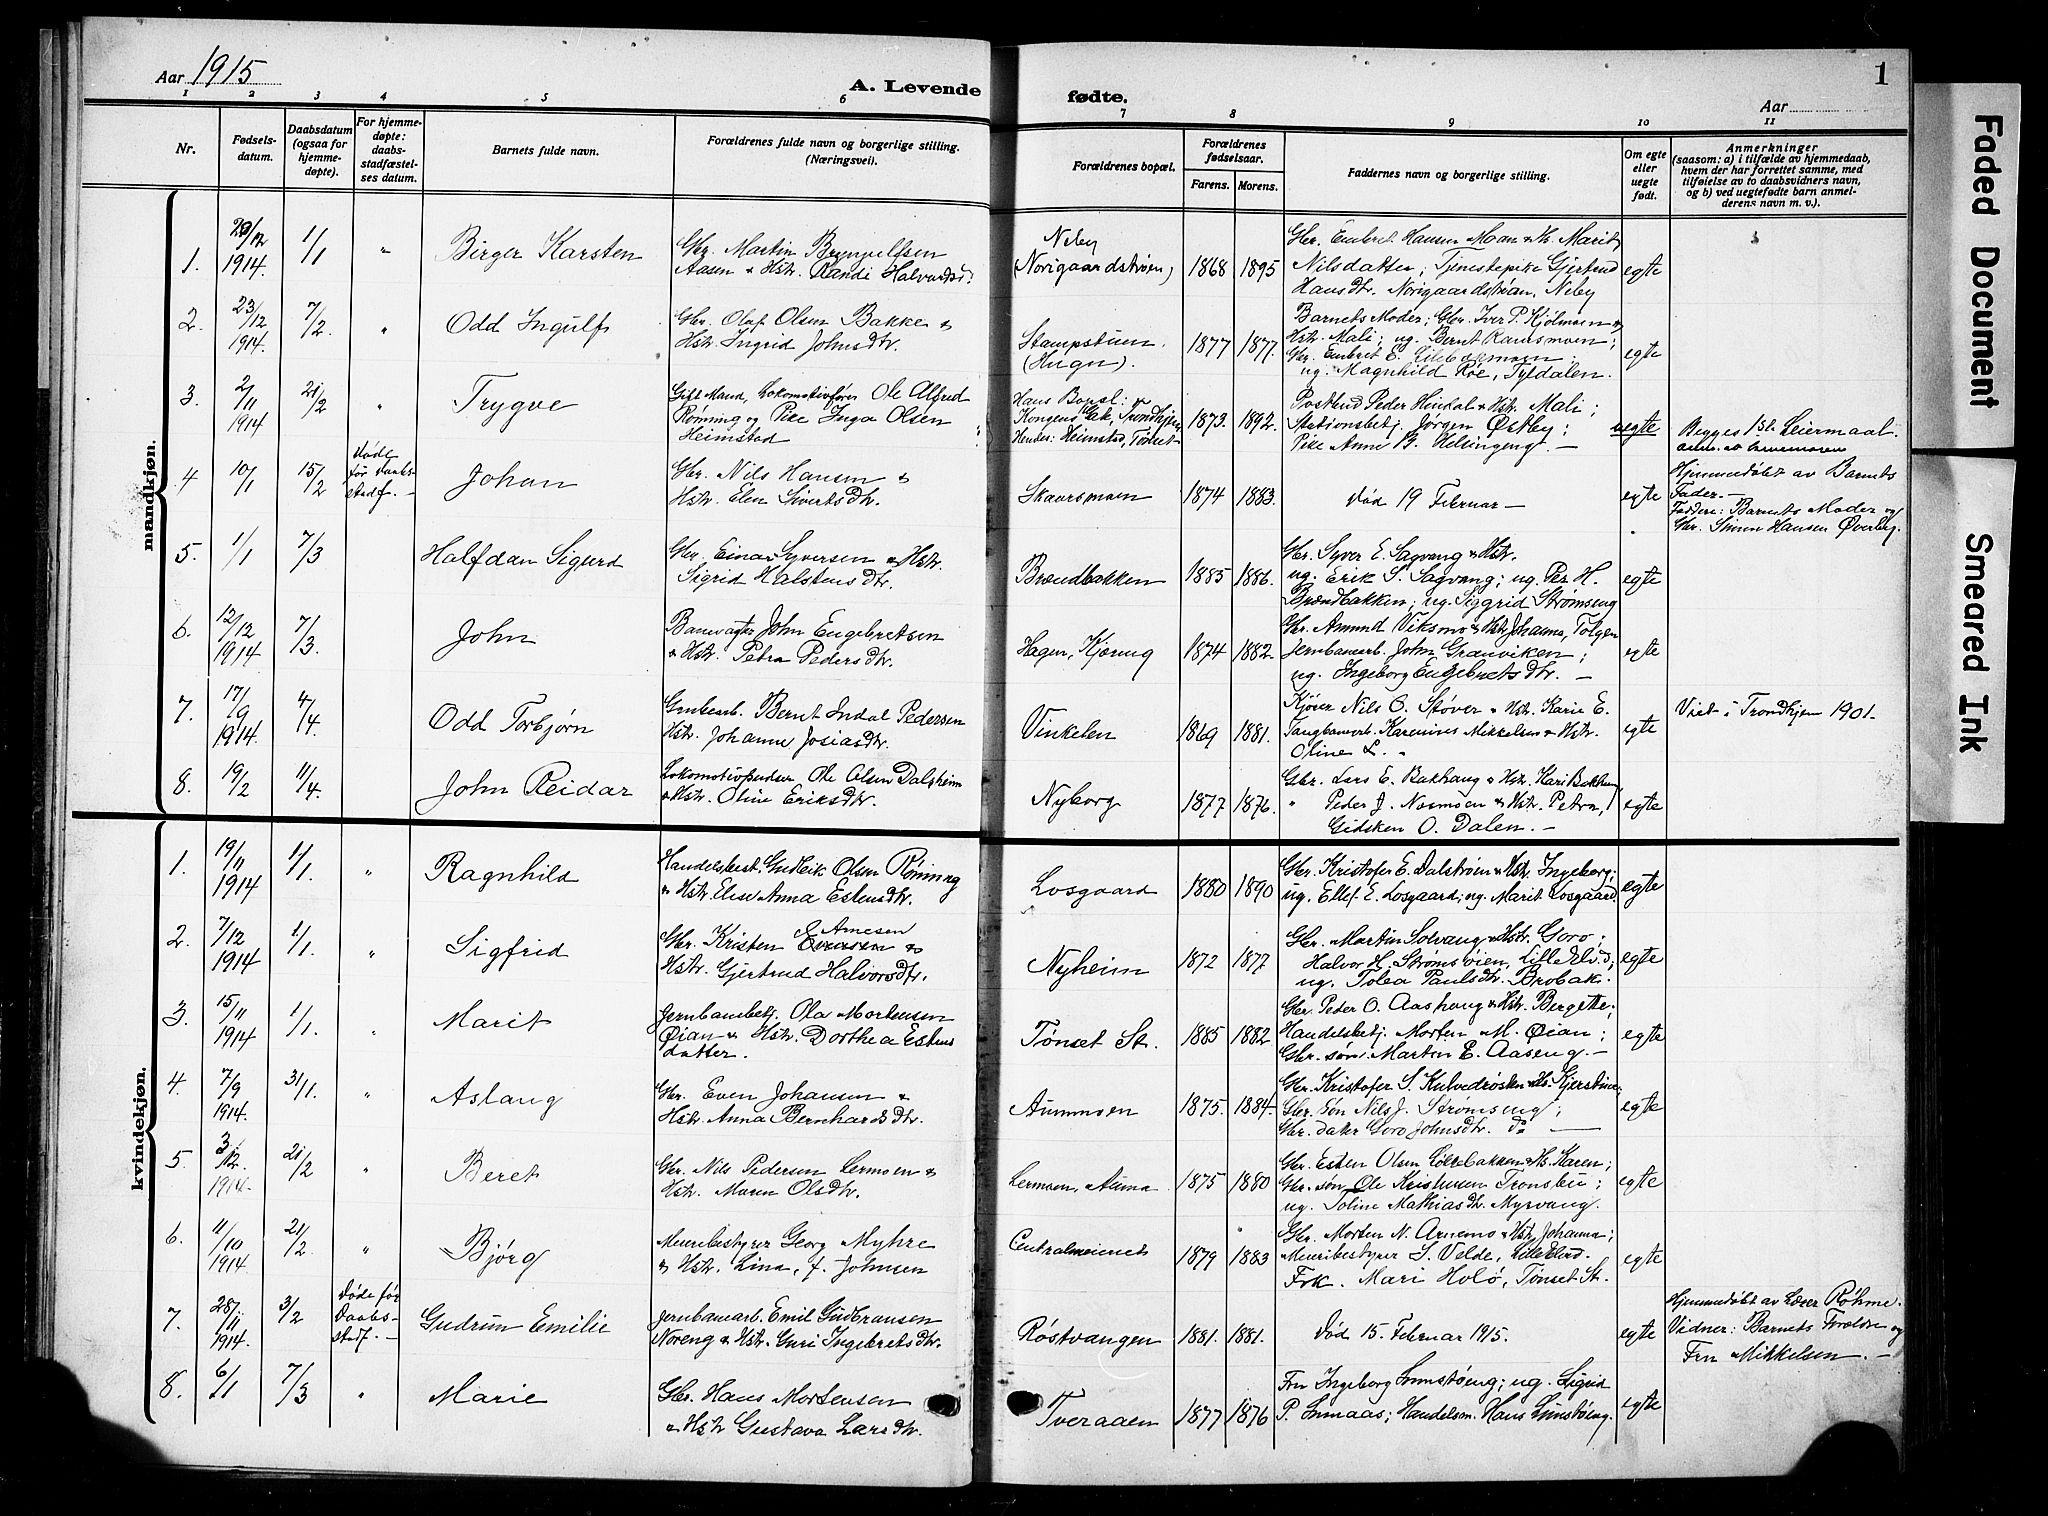 Aar 1915
A. Levende fødte.
1
Aar
1 2 3 4 5 6 7 8 9 10 11
Nr.
Fødsels-
datum.
Daabsdatum
(ogsaa for
hjemme-
døpte).
For hjemme-
døpte:
daabs-
stadfæstel-
ses datum.
Barnets fulde navn.
Forældrenes fulde navn og borgerlige stilling.
(Næringsvei).
Forældrenes bopæl.
Forældrenes
fødselsaar.
Farens. Morens.
Faddernes navn og borgerlige stilling.
Om egte
eller
uegte
født.
Anmerkninger
(saasom: a) i tilfælde av hjemmedaab,
hvem der har forrettet samme, med
tilføielse av to daabsvidners navn,
og b) ved uegtefødte barn anmel-
derens navn m. v.).
mandkjøn.
1. 12 1914. 1/1 " Birger Karsten
Gbr. Martin Brynjulfsen
Aasen & Hstr. Randi Halvorsdtr.
Neby
(Norigaardstrøen) 1868 1895
Gbr. Embret Hansen Moan & Hs. Marit
Nilsdatter; Tjenestepike Gjertrud
Hansdtr. Norigaardstrøan, Neby
egte
2. 23/12 1914. 7/2 " Odd Ingulf
Gbr. Olaf Olsen Bakke &
Hstr. Ingrid Johnsdtr.
Stampstuen
(Hugn). 1877 1877.
Barnets Moder; Gbr. Iver P. Kjølmoen &
Hstr. Mali; ug. Bernt Raudsmoen;
Gbr. Embret E. Lillebækmoen;
ug. Magnhild Røe, Tyldalen.
egte
3. 2/11 1914 21/2 " Trygve
Gift Mand, Lokomotivfører Ole Alfred
Rønning og Pike Inga Olsen
Heimstad
Hans Bopæl:
Kongens Gate, Trondhjem
Hendes: Heimstad, Tønset 1873. 1892.
Postbud Peder Hindal & Hstr. Mali;
Stationsbetj. Jørgen Østby;
Pike Anne B. Helsingeng. –
uegte
Begges 1ste Leiermaal.
4. 10/1 15/2 Døde
før Daabs-
stadf. – Johan
Gbr. Nils Hansen &
Hstr. Elen Sivertsdtr.
Skaarsmoen 1874 1883.
Død 19 Februar –
egte
Hjemmedøbt av Barnets
Fader. –
Faddere: Barnets Moder og
Gbr. Simen Hansen Øverby.
5. 1/1 7/3 Halfdan Sigurd
Gbr. Einar Syversen & Hstr.
Sigrid Halstensdtr.
Brændbakken 1885 1886.
Gbr. Syver E. Sagvang & Hstr.
ug. Erik S. Sagvang; ug. Per H.
Brændbakken; ug. Siggrid Strømseng
egte
6. 12/12 1914 7/3. John
Banevogter John Engebretsen
& Hstr. Petra Pedersdtr.
Hagen, Kjøring 1874 1882.
Gbr. Amund Viksmo & Hstr. Johanna, Tolgen
Jernbanearb. John Granviken;
ug. Ingeborg Engebretsdtr. –
egte
7. 17/9 1914. 4/4. Odd Torbjørn
Grubearb. Bernt Indal Pedersen
Hstr. Johanne Josiasdtr.
Vinkelen 1869 1881.
Kjører Nils O. Støver & Hstr. Karie E.
Karenius Mikkelsen & Hstr.
Oline L. "
egte
Viet i Trondhjem 1901.
8. 19/2 11/4. John Reidar
Lokomotivpudser Ole Olsen Dalsheim
& Hstr. Oline Eriksdtr.
Nyborg 1877 1876.
Gbr. Lars E. Bakhaug & Hstr. Kari Bakhaug
" Peder J. Nosmoen & Hstr. Petra,
Gidsken O. Dalen. –
egte
kvindekjøn.
1. 19/11 1914 1/1. " Ragnhild
Handelsbest. Gudleik Olsen Røning
& Hstr. Elise Anna Estensdtr.
Losgaard 1880 1890
Gbr. Kristofer E. Dalstrøen & Hstr. Ingeborg;
ug. Ellef E. Losgaard; ug. Marit Losgaard.
egte
2. 7/12 1914 1/1. " Sigfrid
Arnesen
Gbr. Kristen Evensen &
Hstr. Gjertrud Halvorsdtr.
Nyheim 1872 1877
Gbr. Martin Solvang & Hstr. Goro;
Halvor H. Strømsøien, Lille Elvd.;
ug. Tolea Paulsdtr. Brobak.
egte
3. 15/11 1914 1/1. " Marit
Jernbanebetj. Ola Mortensen
Øian & Hstr. Dorthea Estens
datter.
Tønset St. 1885 1882
Gbr. Peder O. Aashaug & Hstr. Bergette;
Handelsbetj. Morten M. Øian;
Gbr. søn Martin E. Aaseng. –
egte
4. 7/9 1914. 31/1. " Aslaug
Gbr. Even Johansen &
Hstr. Anna Bernhardsdtr.
Aummoen 1875. 1884.
Gbr. Kristofer S. Kulvedrøsten & Hs. Kjerstine;
Gbr. søn Nils J. Strømseng;
Gbr. dater Goro Johnsdtr. do –
egte
5. 3/12 1914. 21/2 " Beret
Gbr. Nils Pedersen Lermoen &
Hstr. Maren Olsdtr.
Lermoen, Auma 1875 1880
Gbr. Esten Olsen Lillebakken & Hs. Karen;
Gbr. søn Ole Kristensen Tronsbu;
ug. Toline Mathiasdtr. Myrvang.
egte
6. 11/10 1914 21/2. " Bjørg
Meieribestyrer Georg Myhre
& Hstr. Lina, f. Johnsen
Centralmeieriet 1879 1883
Gbr. Morten N. Arnemo & Hstr. Johanna;
Meieribestyrer S. Velde, Lille Elvd.
Frk. Mari Holø, Tønset St.
egte
7. 28/11 1914 3/2 Døde før
Daabs-
stadf. – Gudrun Emilie
Jernbanearb. Emil Gudbransen
Noreng & Hstr. Guri Ingebretsdtr.
Røstvangen 1881. 1881.
Død 15. Februar 1915.
egte
Hjemmedøbt av Læge Røhme.
Vidner: Barnets Forældre og
Fru Mikkelsen. –
8. 6/1 7/3 " Marie
Gbr. Hans Mortensen
& Hstr Gustava Larsdtr.
Tveraaen 1877 1876
Fru Ingeborg Lunstøeng; ug. Sigrid
P. Inmaas; Handelsm. Hans Lunstøeng.
egte
Faded Document
Smeared Ink